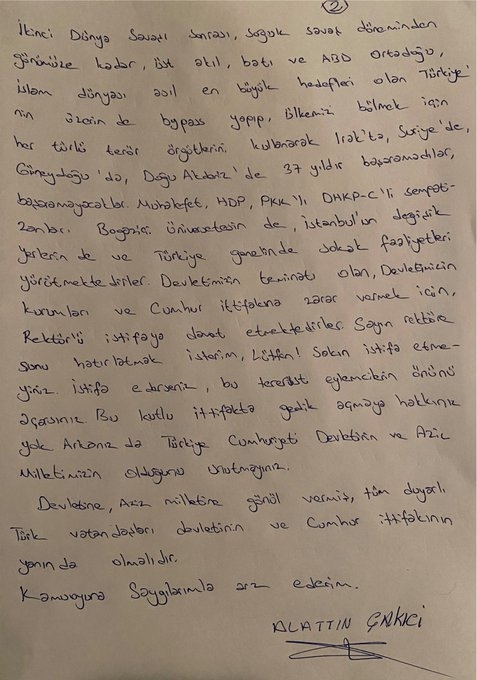 2
İkinci Dünya Savaşı sonrası, soğuk savaş döneminden
günümüze kadar, üst akıl, batı ve ABD Ortadoğu,
İslam dünyası asıl en büyük hedefleri olan Türkiye'
nin üzerin de bypass yapıp, ülkemizi bölmek için
her türlü terör örgütlerini kullanarak Irak'ta, Suriye'de,
Güneydoğu'da, Doğu Akdeniz'de 37 yıldır başaramadılar,
başaramayacaklar. Muhalefet, HDP, PKK'lı, DHKP-C'li sempati-
zanları. Boğaziçi Üniversitesin de, İstanbul'un değişik
yerlerin de ve Türkiye genelinde sokak faaliyetleri
yürütmektedirler. Devletimizin teminatı olan, Devletimizin
kurumları ve Cumhur ittifakına zarar vermek için,
Rektör'ü istifaya davet etmektedirler. Sayın rektöre
şunu hatırlatmak isterim, Lütfen! Sakın istifa etme-
yiniz. İstifa ederseniz, bu terörist eylemcilerin önünü
açarsınız. Bu kutlu ittifakta gedik açmaya hakkınız
yok. Arkanız da Türkiye Cumhuriyeti Devletinin ve Aziz
Milletimizin olduğunu unutmayınız.
Devletine, Aziz milletine gönül vermiş, tüm duyarlı
Türk vatandaşları devletinin ve Cumhur ittifakının
yanında olmalıdır.
Kamuoyuna Saygılarımla arz ederim.
ALATTİN ÇAKICI